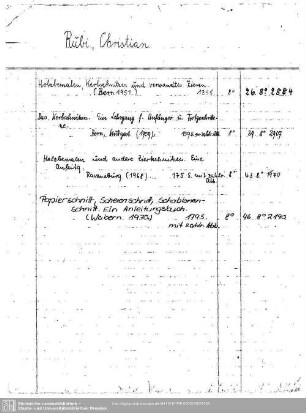 Rübi, Christian
Holzbemalen, Kerbschnitzen und verwandtes Zieren.
(Bern 1951. 1351. 8° 26. 8° 2884
Das Kerbschnitzen. Ein Lehrgang f. Anfänger u. Fortgeschritte-
ne.
Bern, Stuttgart (1959). 8° 39. 8° 2909
Holzbemalen und andere Ziertechniken. Eine
Anleitg.
Ravensburg (1968). 175 S. mit zahlr. 8° 43. 8° 1970
Abb.
Papierschnitt, Scherenschnitt, Schablonen-
schnitt. Ein Anleitungsbuch.
(Wabern. 1973) 179 S. 8° 46. 8° 2190
mit zahlr. Abb.